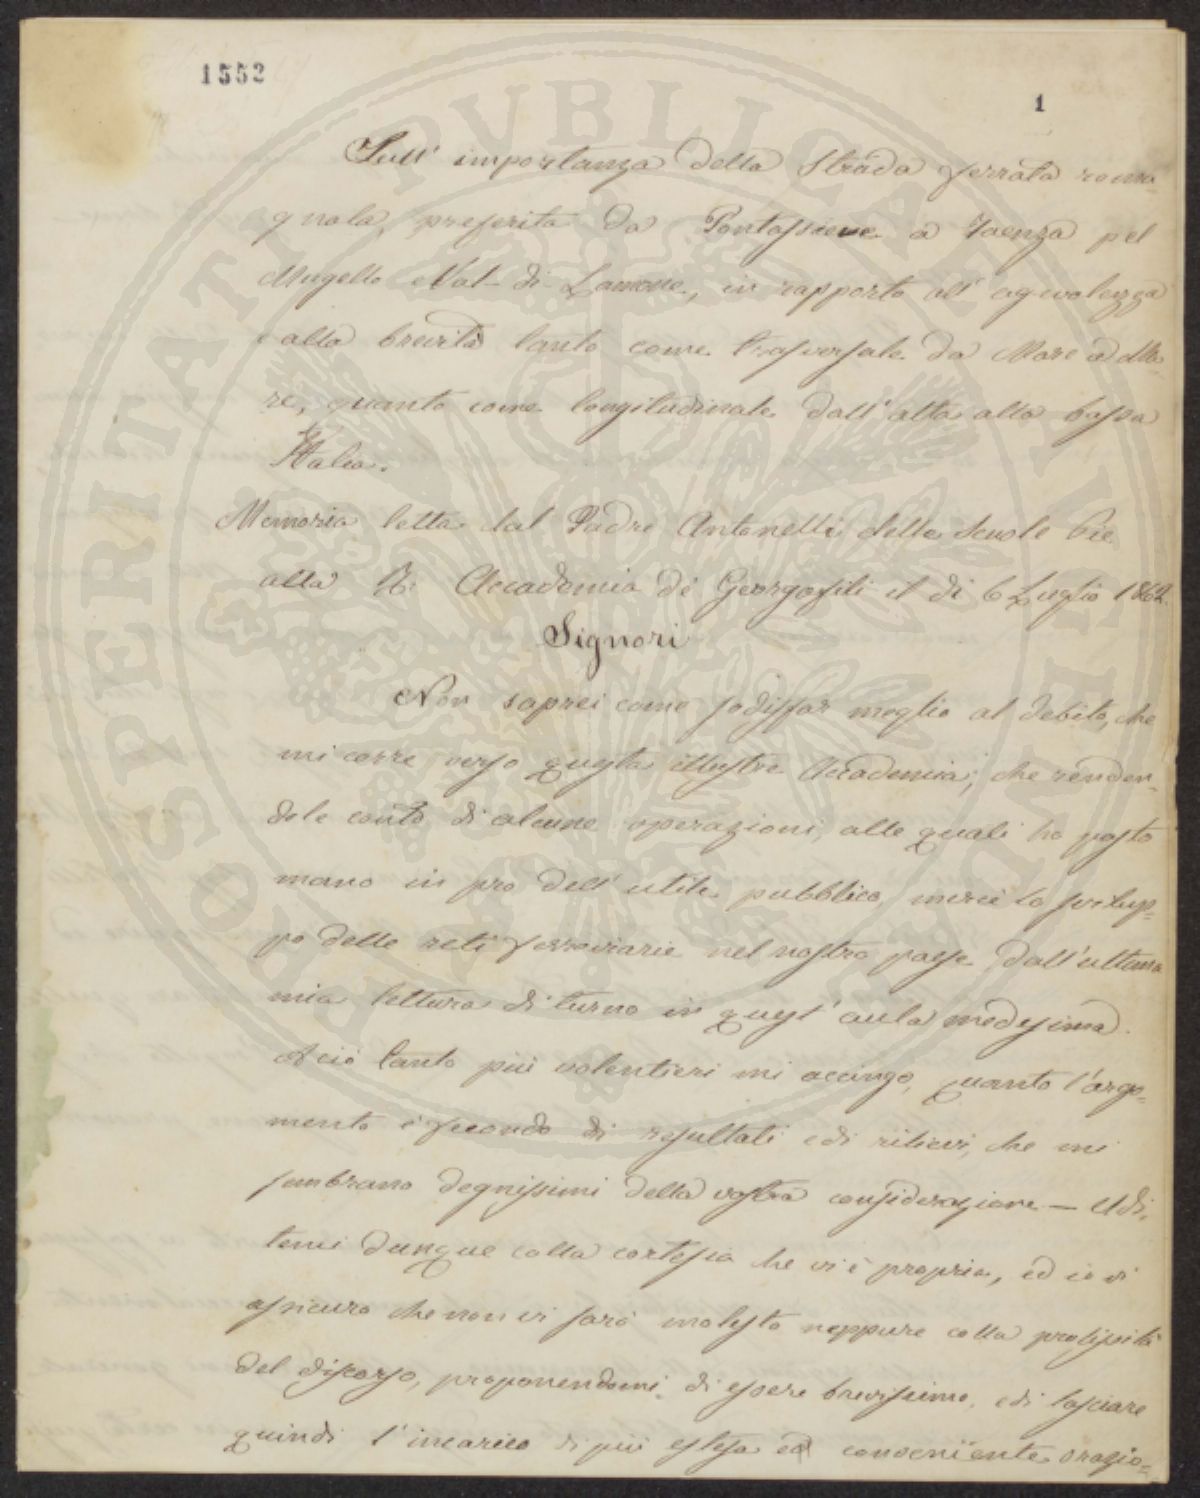 1552
1
Sull' importanza della Strada ferrata roma-
gnola, preferita da Pontassieve a Faenza pel
Mugello e Val-di-Lamone, in rapporto all' agevolezza
e alla brevità tanto come trasversale da Mare a Ma-
re, quanto come longitudinale dall' alta alla bassa
Italia.
Memoria letta dal Padre Antonelli delle Scuole Pie
alla R. Accademia de' Georgofili il dì 6 Luglio 1862.
Signori
Non saprei come sodisfar meglio al debito, che
mi corre verso questa illustre Accademia, che renden-
dole conto di alcune operazioni, alle quali ho posto
mano in pro dell' utile pubblico, mercè lo svilup=
po delle reti ferroviarie nel nostro paese dall' ultima
mia lettura di turno in quest' aula medesima.
A ciò tanto più volentieri mi accingo, quanto l'argo=
mento è fecondo di resultati e di rilievi, che mi
sembrano degnissimi della vostra considerazione — Udi-
temi dunque colla cortesia che vi è propria, ed io vi
assicuro che non vi sarò molesto neppure colla prolissità
del discorso, proponendomi di essere brevissimo, e di lasciare
quindi l' incarico di più estesa ed conveniente orazio=
PROSPERITATI PUBLICAE AUGENDAE